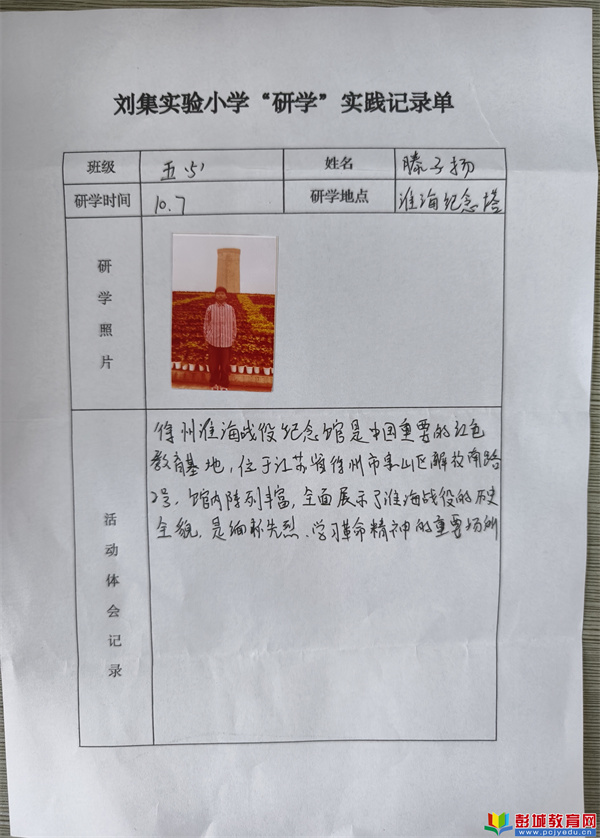 刘集实验小学“研学”实践记录单
班级 五(5) 姓名 滕子扬
研学时间 10.7 研学地点 淮海纪念塔
研学照片
活动体会记录
徐州淮海战役纪念馆是中国重要的红色
教育基地,位于江苏省徐州市泉山区解放南路
2号,馆内陈列丰富,全面展示了淮海战役的历史
全貌,是缅怀先烈、学习革命精神的重要场所
彭城教育网
www.pcjyedu.com